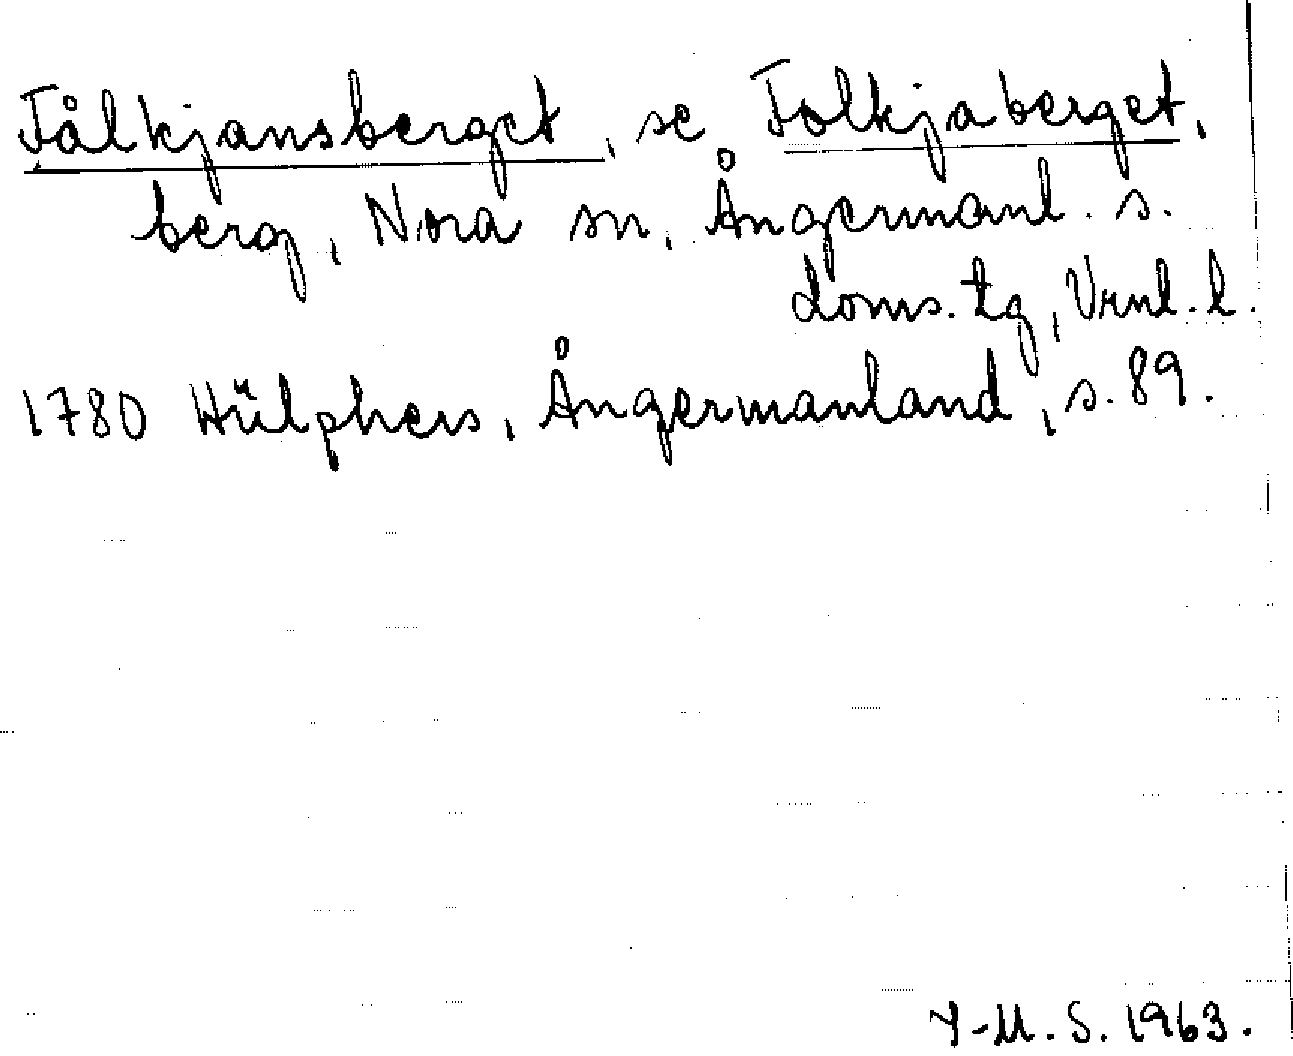 Fålkjansberget, se Folkjaberget,
berg, Nora sn, Ångermanl. s.
doms. tg, Vrnl. l.
1780 Hülphers, Ångermanland, s. 89.
Y-M. S. 1963.